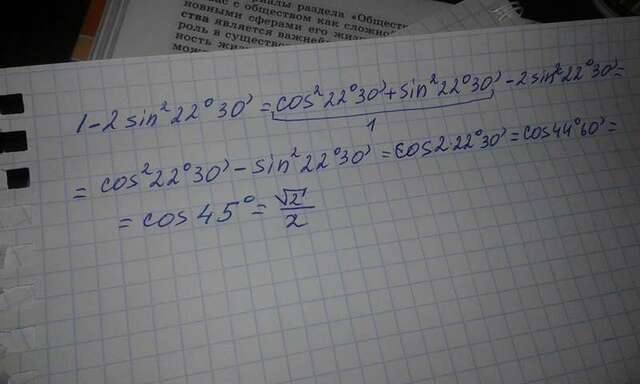 риалы раздела «Общест
с обществом как сложно
новными сферами его жиз
ства является важней
роль в существо
ность жиз
мож
1-2 sin²22°30' = cos²22°30' + sin²22°30' - 2 sin²22°30' =
1
= cos²22°30' - sin²22°30' = cos 2·22°30' = cos 44°60' =
= cos 45° = √2/2